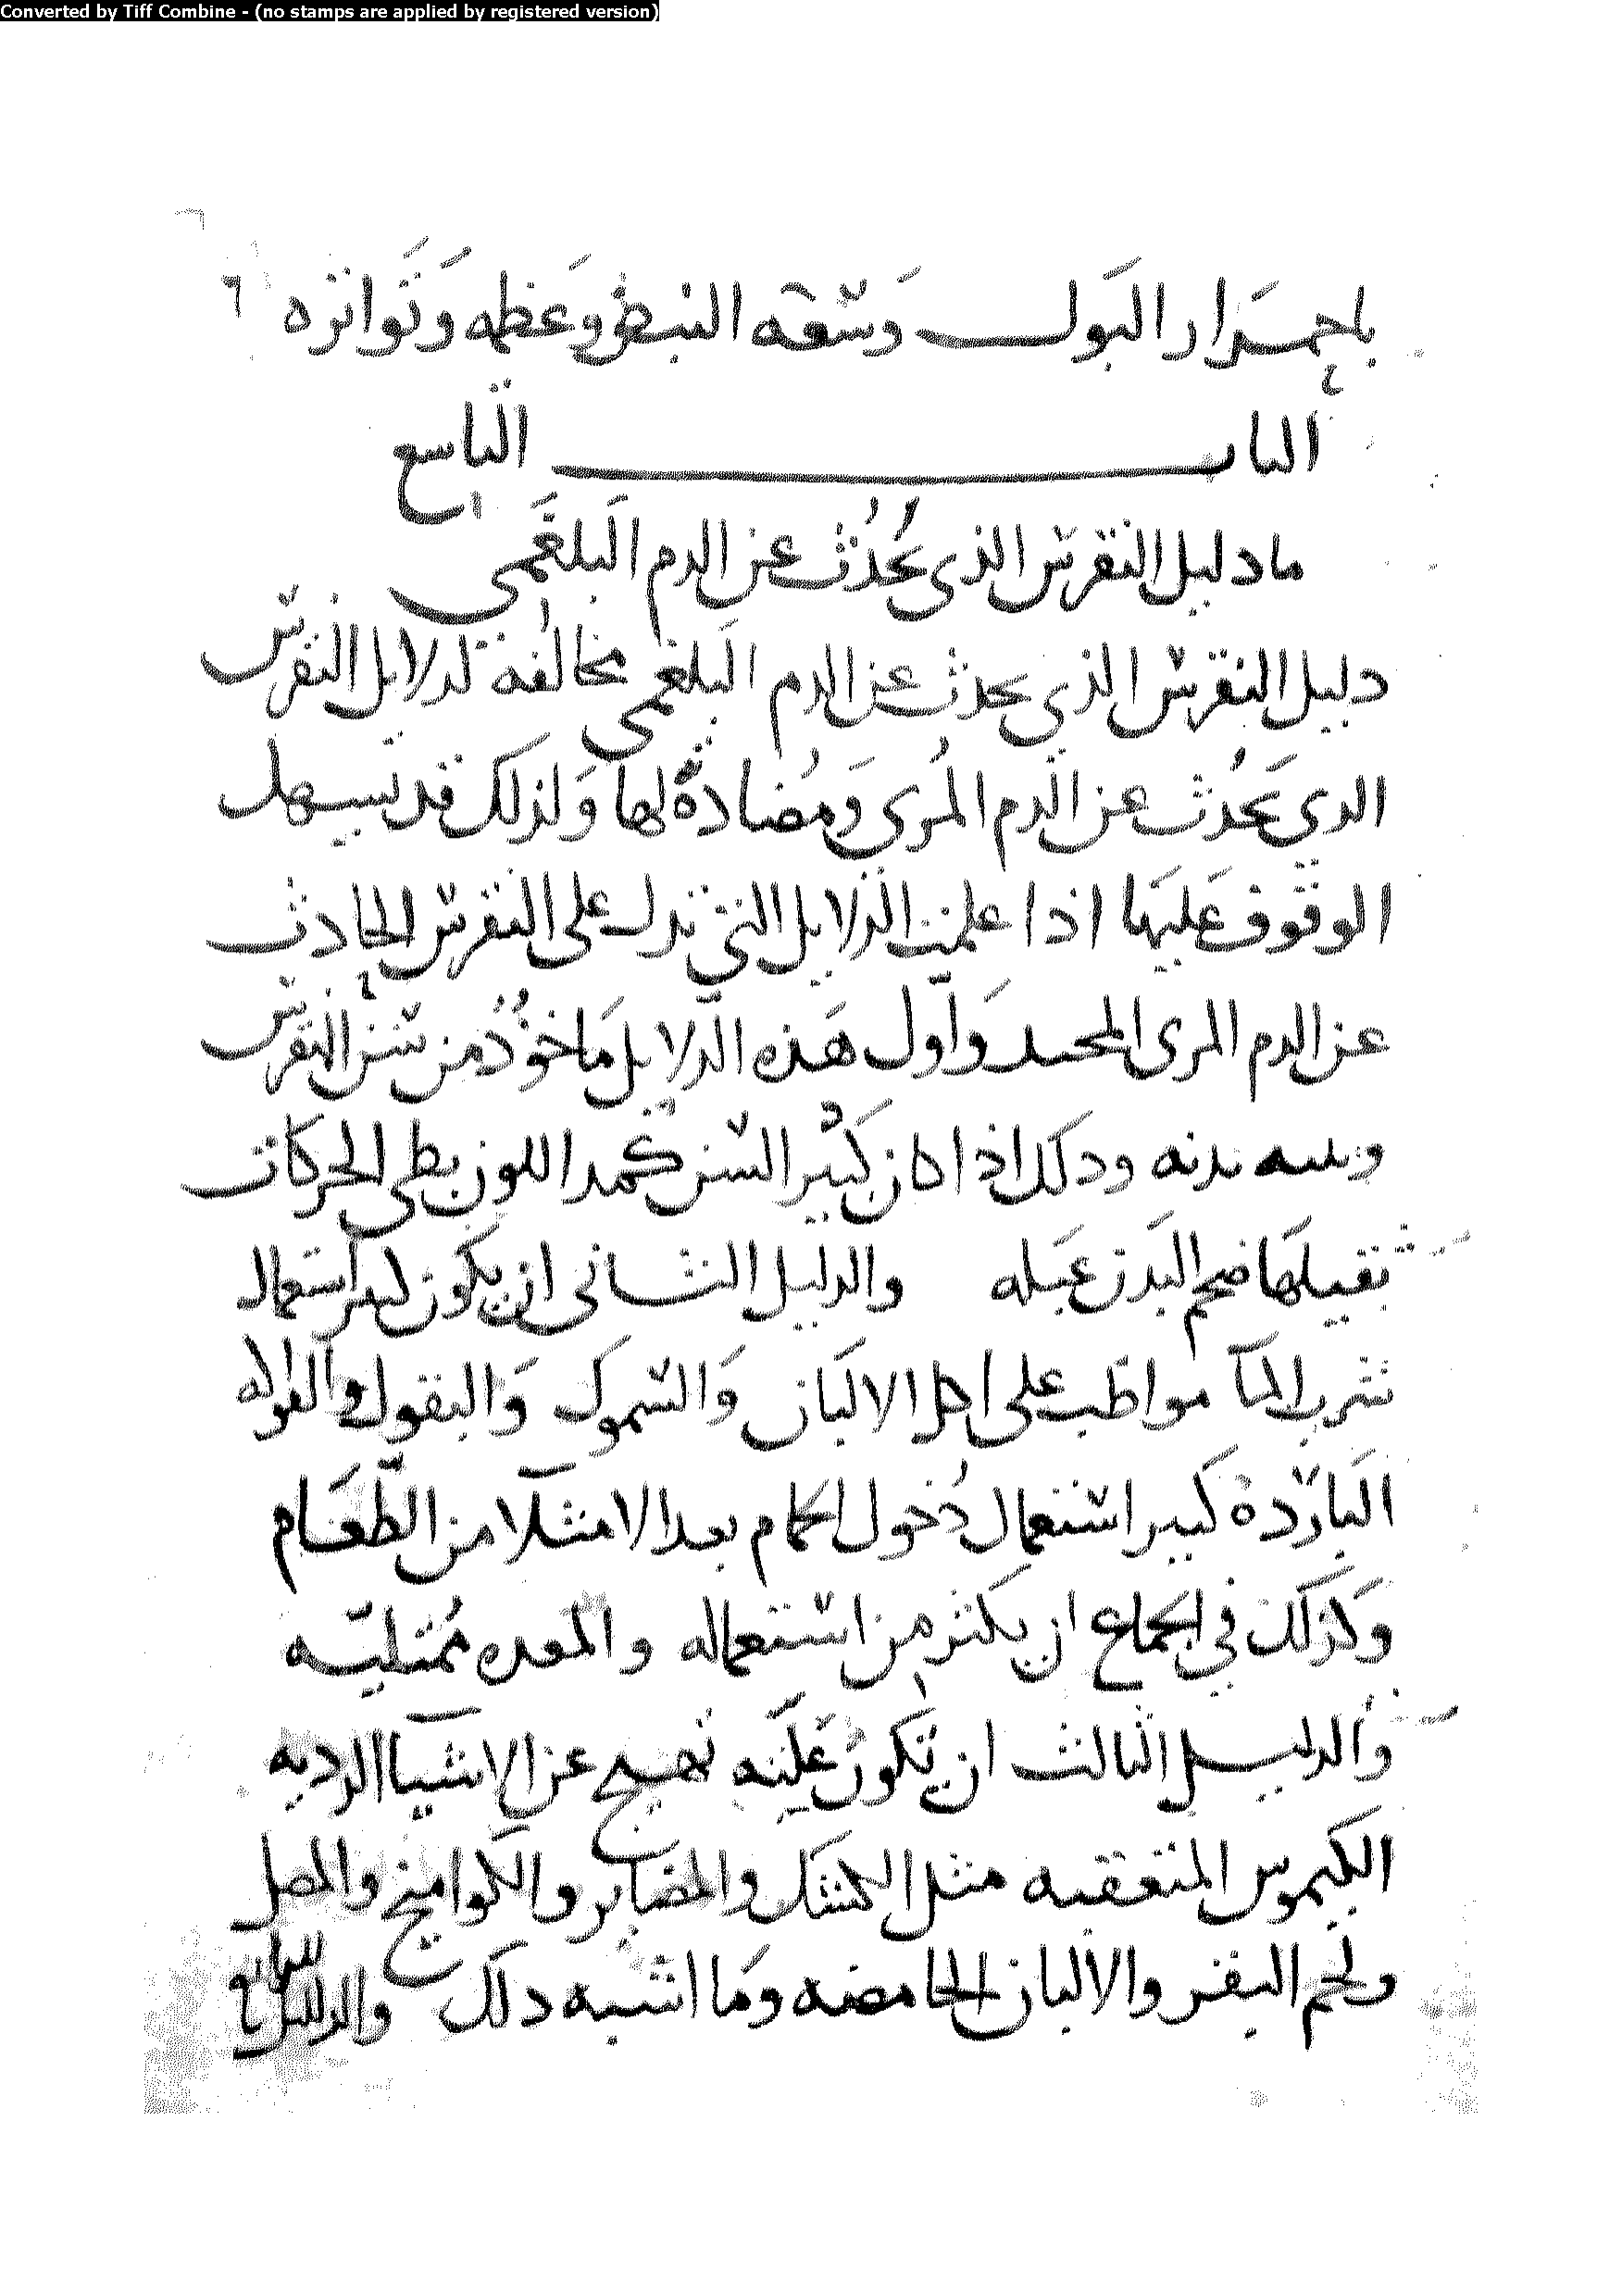 Converted by Tiff Combine - (no stamps are applied by registered version)
٦
باحمرار البول وسعه النبض وعظمه وتواتره
الباب التاسع
ما دليل النقرس الذى يحدث عن الدم البلغمى
دليل النقرس الذي يحدث عن الدم البلغمى مخالفة لدلايل النقرس
الدى يحدث عن الدم المرى ومضادة لها ولذلك قد تسهل
الوقوف عليها اذا علمت الدلايل التي تدل على النقرس الحادث
عن الدم المرى المحتد وَاول هَذه الدلايل مَاخوذ من سن النقرس
بدنه ودلك اذا كان كبير السن كمد اللون بطى الحركات
ثقيلها ضخم البدن عَبله والدليل الثانى ان يكون استعمال
شرب المآ مواظب على اكل الالبان وَالسموك وَالبقول والفواكه
البَاردة كبير استعمال دُخول الحمام بعد الامتلآ من الطعَام
وَكذلك في الجماع ان يكثر من استعماله والمعده ممتليه
والدليل الثالث ان يكون علته تهيج عن الاشيآ الرديه
الكيموس المتعقبه مثل الكشك والمضاير والكوامخ والمصل
ولحم البقر والالبان الحامضه وما اشبه دلك والدليل الرابع